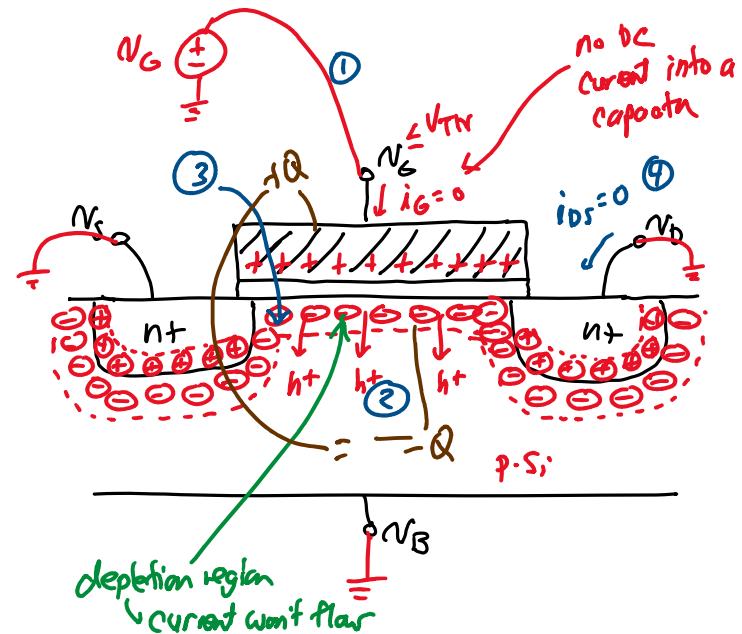 ①
no DC
current into a
V_G
< V_THr
capacitor
V_G
③
+Q
i_G=0
i_DS=0 ④
V_S
V_D
+ + + + + + + + +
n+
n+
h+ h+ h+
②
= -Q
p-Si
V_B
depletion region
↳ current won't flow